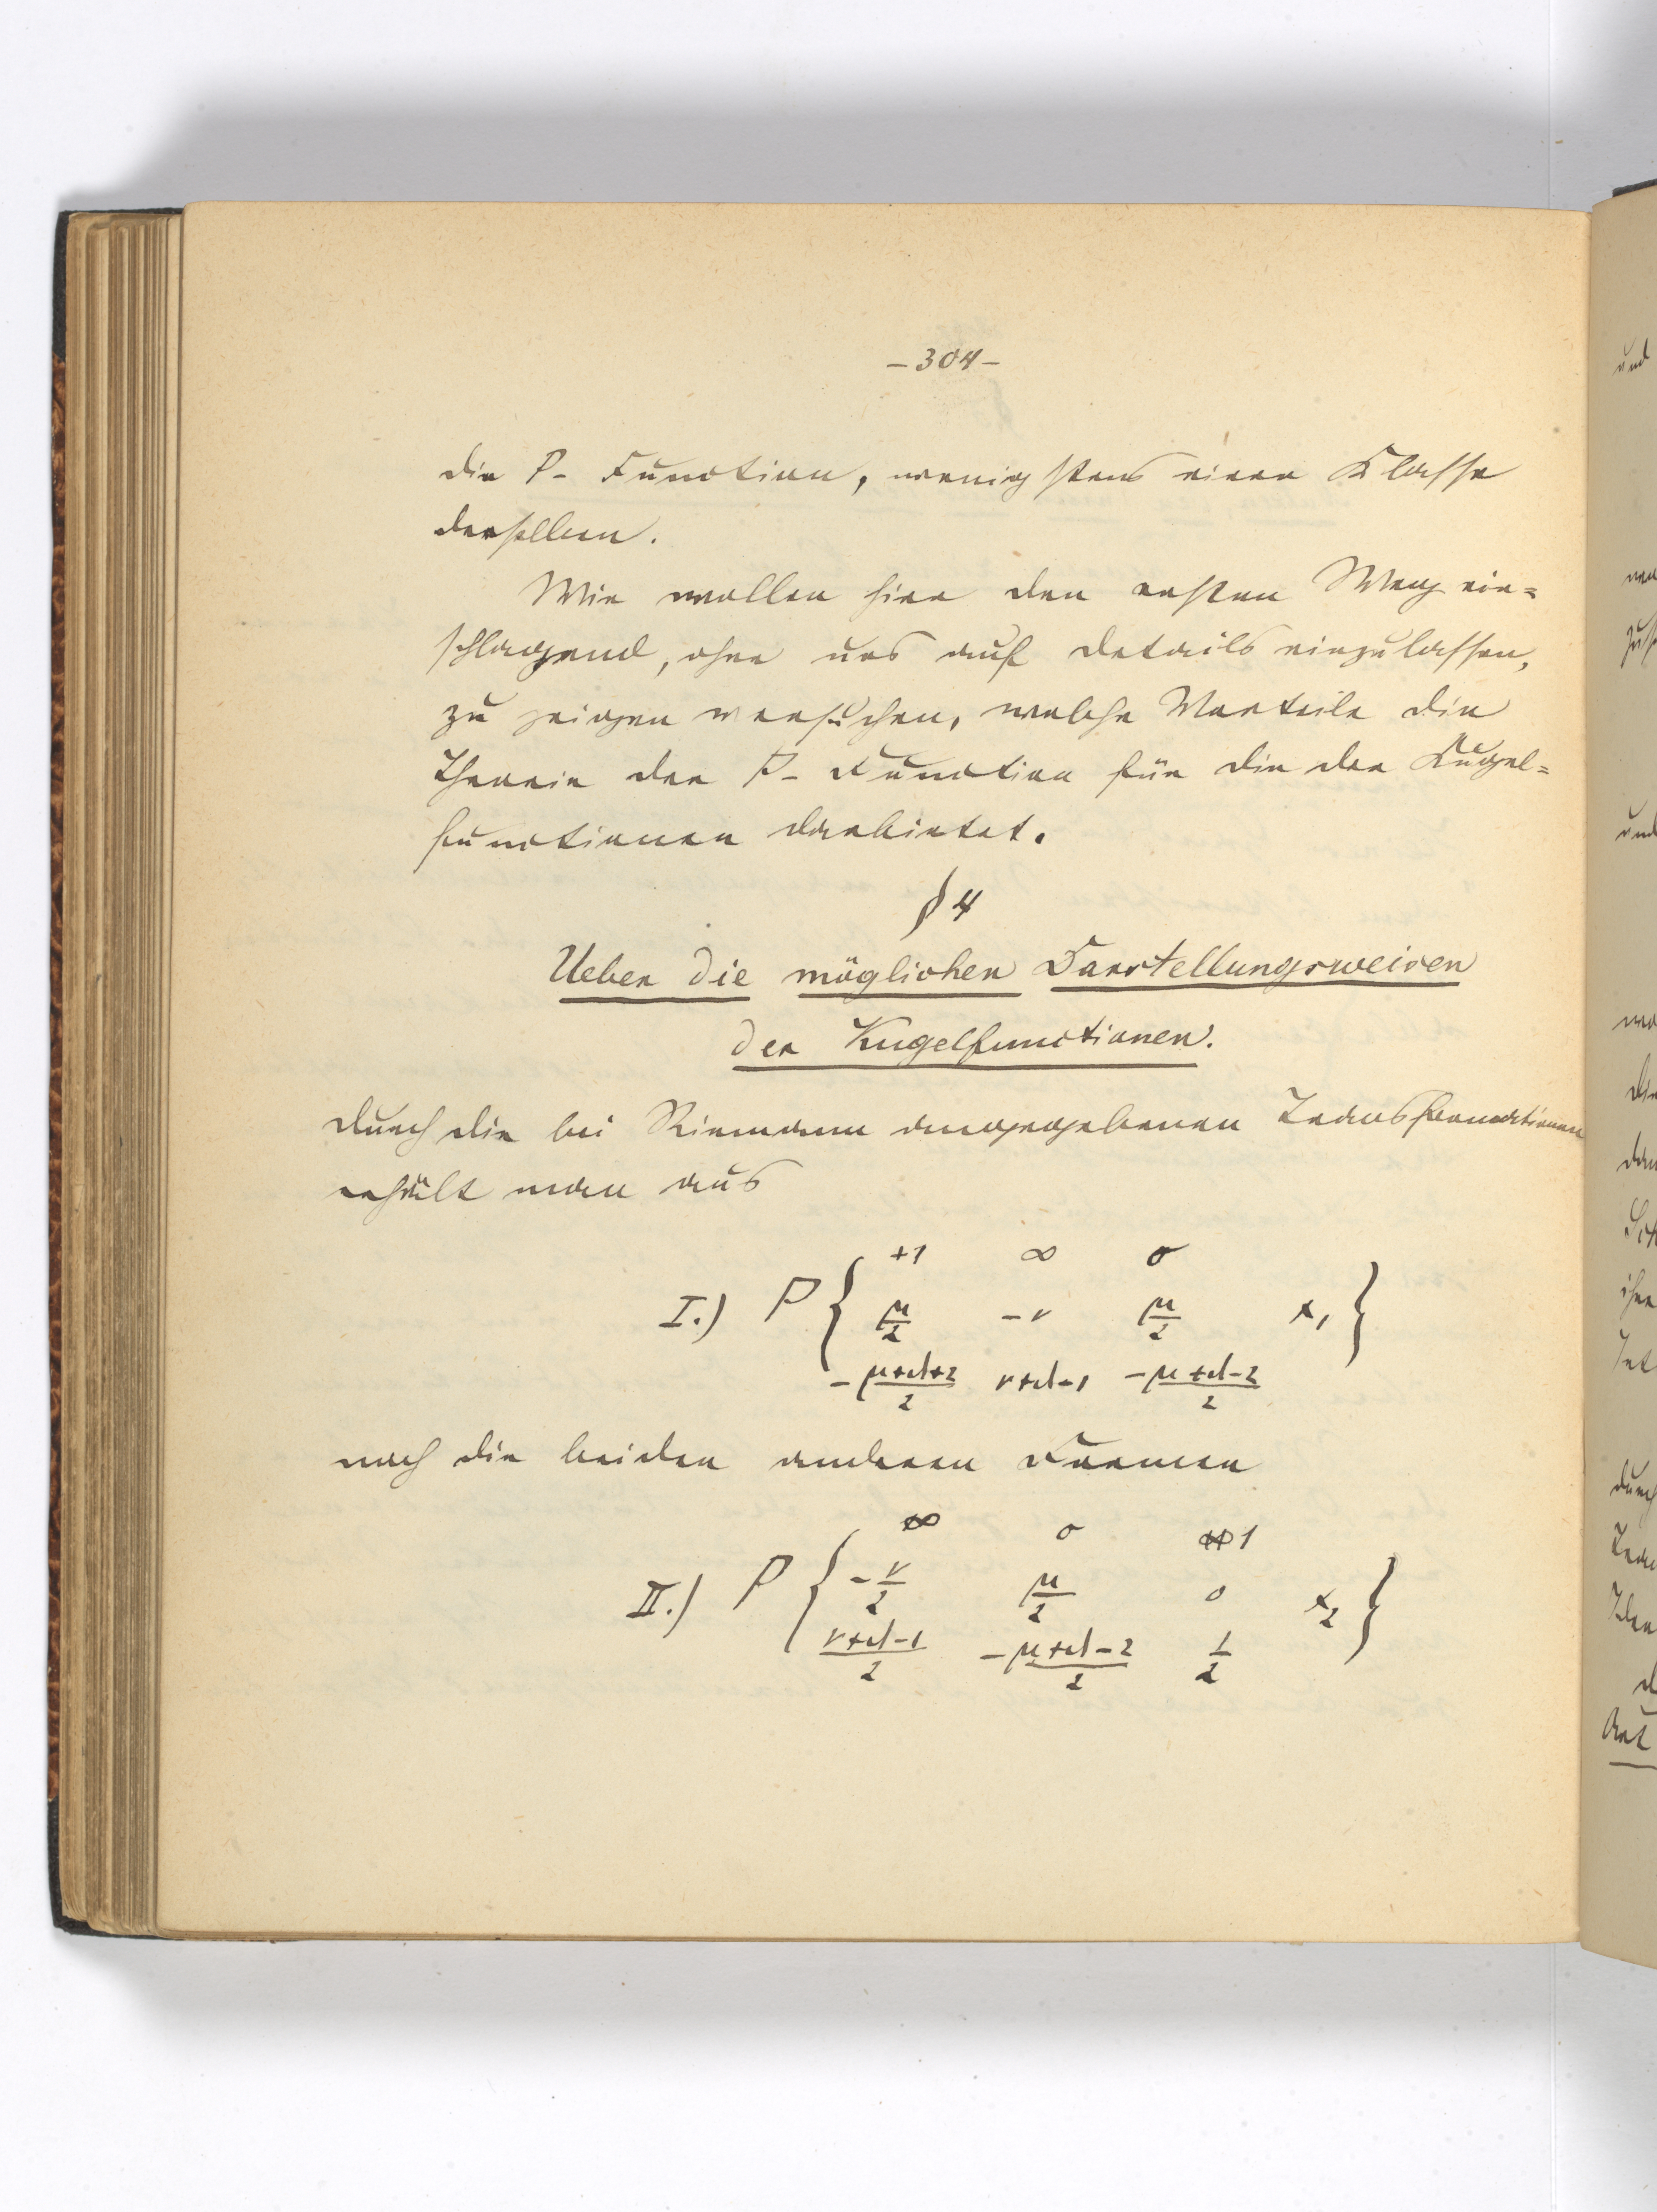 – 304 –
die P- Function, wenigstens einer Klasse
derselben.
Wir wollen hier den ersten Weg ein=
schlagend, ohne uns auf Details einzulassen,
zu zeigen versuchen, welche Vorteile die
Theorie der P- Function für die der Kugel=
functionen darbietet.
§ 4
Ueber die möglichen Darstellungsweisen
der Kugelfunctionen.
Durch die bei Riemann angegebenen Transformationen
erhält man aus
+1 ∞ 0
I.) P { μ/2 -ν μ/2 x₁ }
-(μ+d+2)/2 ν+d-1 -(μ+d-2)/2
noch die beiden anderen Formen
∞ 0 1
II.) P { -ν/2 μ/2 0 x₂ }
(ν+d-1)/2 -(μ+d-2)/2 1/2
und